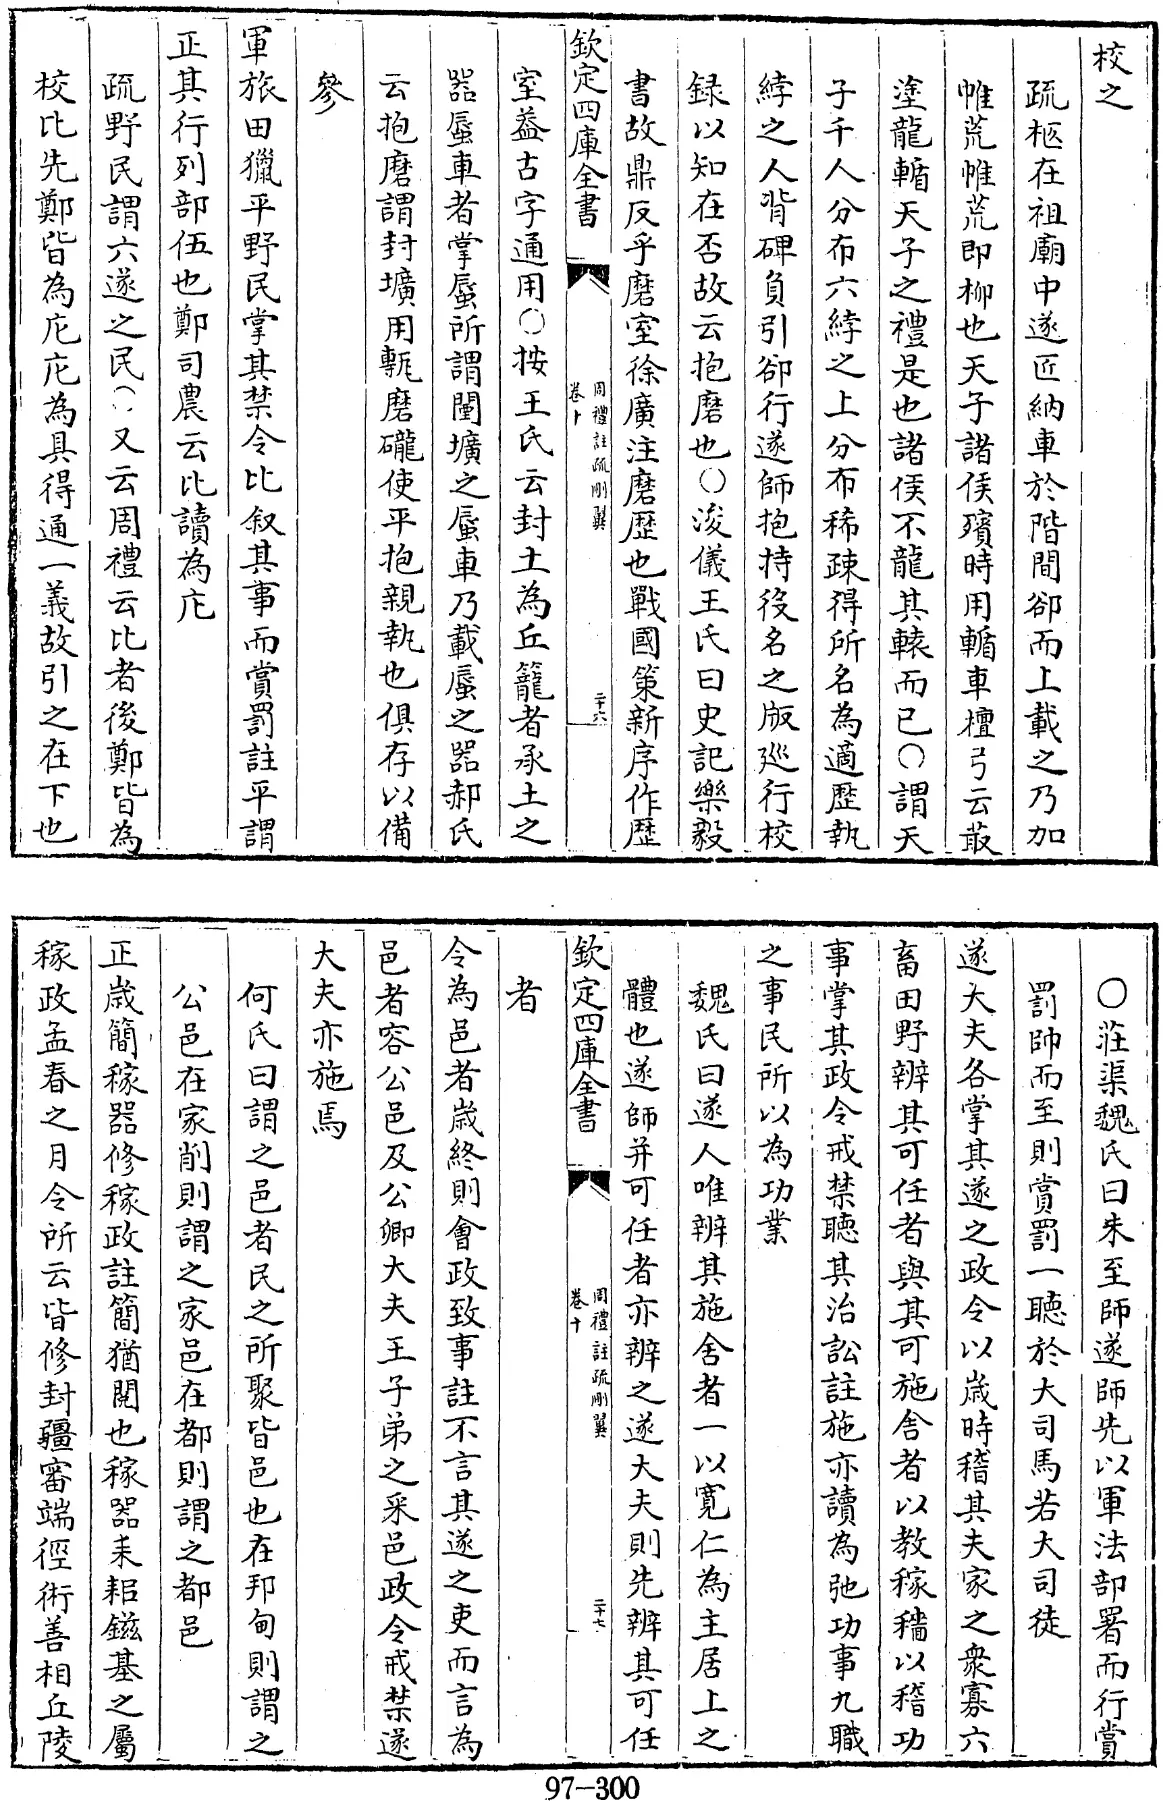 校之
疏柩在祖廟中遂匠納車於階間卻而上載之乃加
帷荒帷荒即柳也天子諸侯殯時用輴車檀弓云菆
塗龍輴天子之禮是也諸侯不龍其轅而已〇謂天
子千人分布六綍之上分布稀疎得所名為適歴執
綍之人背碑負引卻行遂師抱持役名之版廵行校
録以知在否故云抱磨也〇浚儀王氏曰史記樂毅
書故鼎反乎磨室徐廣注磨歴也戰國策新序作歴
欽定四庫全書
周禮註疏刪翼
卷十
二十六
室葢古字通用〇按王氏云封土為丘籠者承土之
器蜃車者掌蜃所謂闉壙之蜃車乃載蜃之器郝氏
云抱磨謂封壙用甎磨礲使平抱親執也俱存以備
參
軍旅田獵平野民掌其禁令比叙其事而賞罰註平謂
正其行列部伍也鄭司農云比讀為庀
疏野民謂六遂之民〇又云周禮云比者後鄭皆為
校比先鄭皆為庀庀為具得通一義故引之在下也
〇莊渠魏氏曰朱至師遂師先以軍法部署而行賞
罰帥而至則賞罰一聽於大司馬若大司徒
遂大夫各掌其遂之政令以歳時稽其夫家之衆寡六
畜田野辨其可任者與其可施舍者以教稼穡以稽功
事掌其政令戒禁聽其治訟註施亦讀為弛功事九職
之事民所以為功業
魏氏曰遂人唯辨其施舍者一以寛仁為主居上之
體也遂師并可任者亦辨之遂大夫則先辨其可任
欽定四庫全書
周禮註疏刪翼
卷十
二十七
者
令為邑者歳終則會政致事註不言其遂之吏而言為
邑者容公邑及公卿大夫王子弟之采邑政令戒禁遂
大夫亦施焉
何氏曰謂之邑者民之所聚皆邑也在邦甸則謂之
公邑在家削則謂之家邑在都則謂之都邑
正歳簡稼器修稼政註簡猶閱也稼器耒耜鎡基之屬
稼政孟春之月令所云皆修封疆審端徑術善相丘陵
97-300